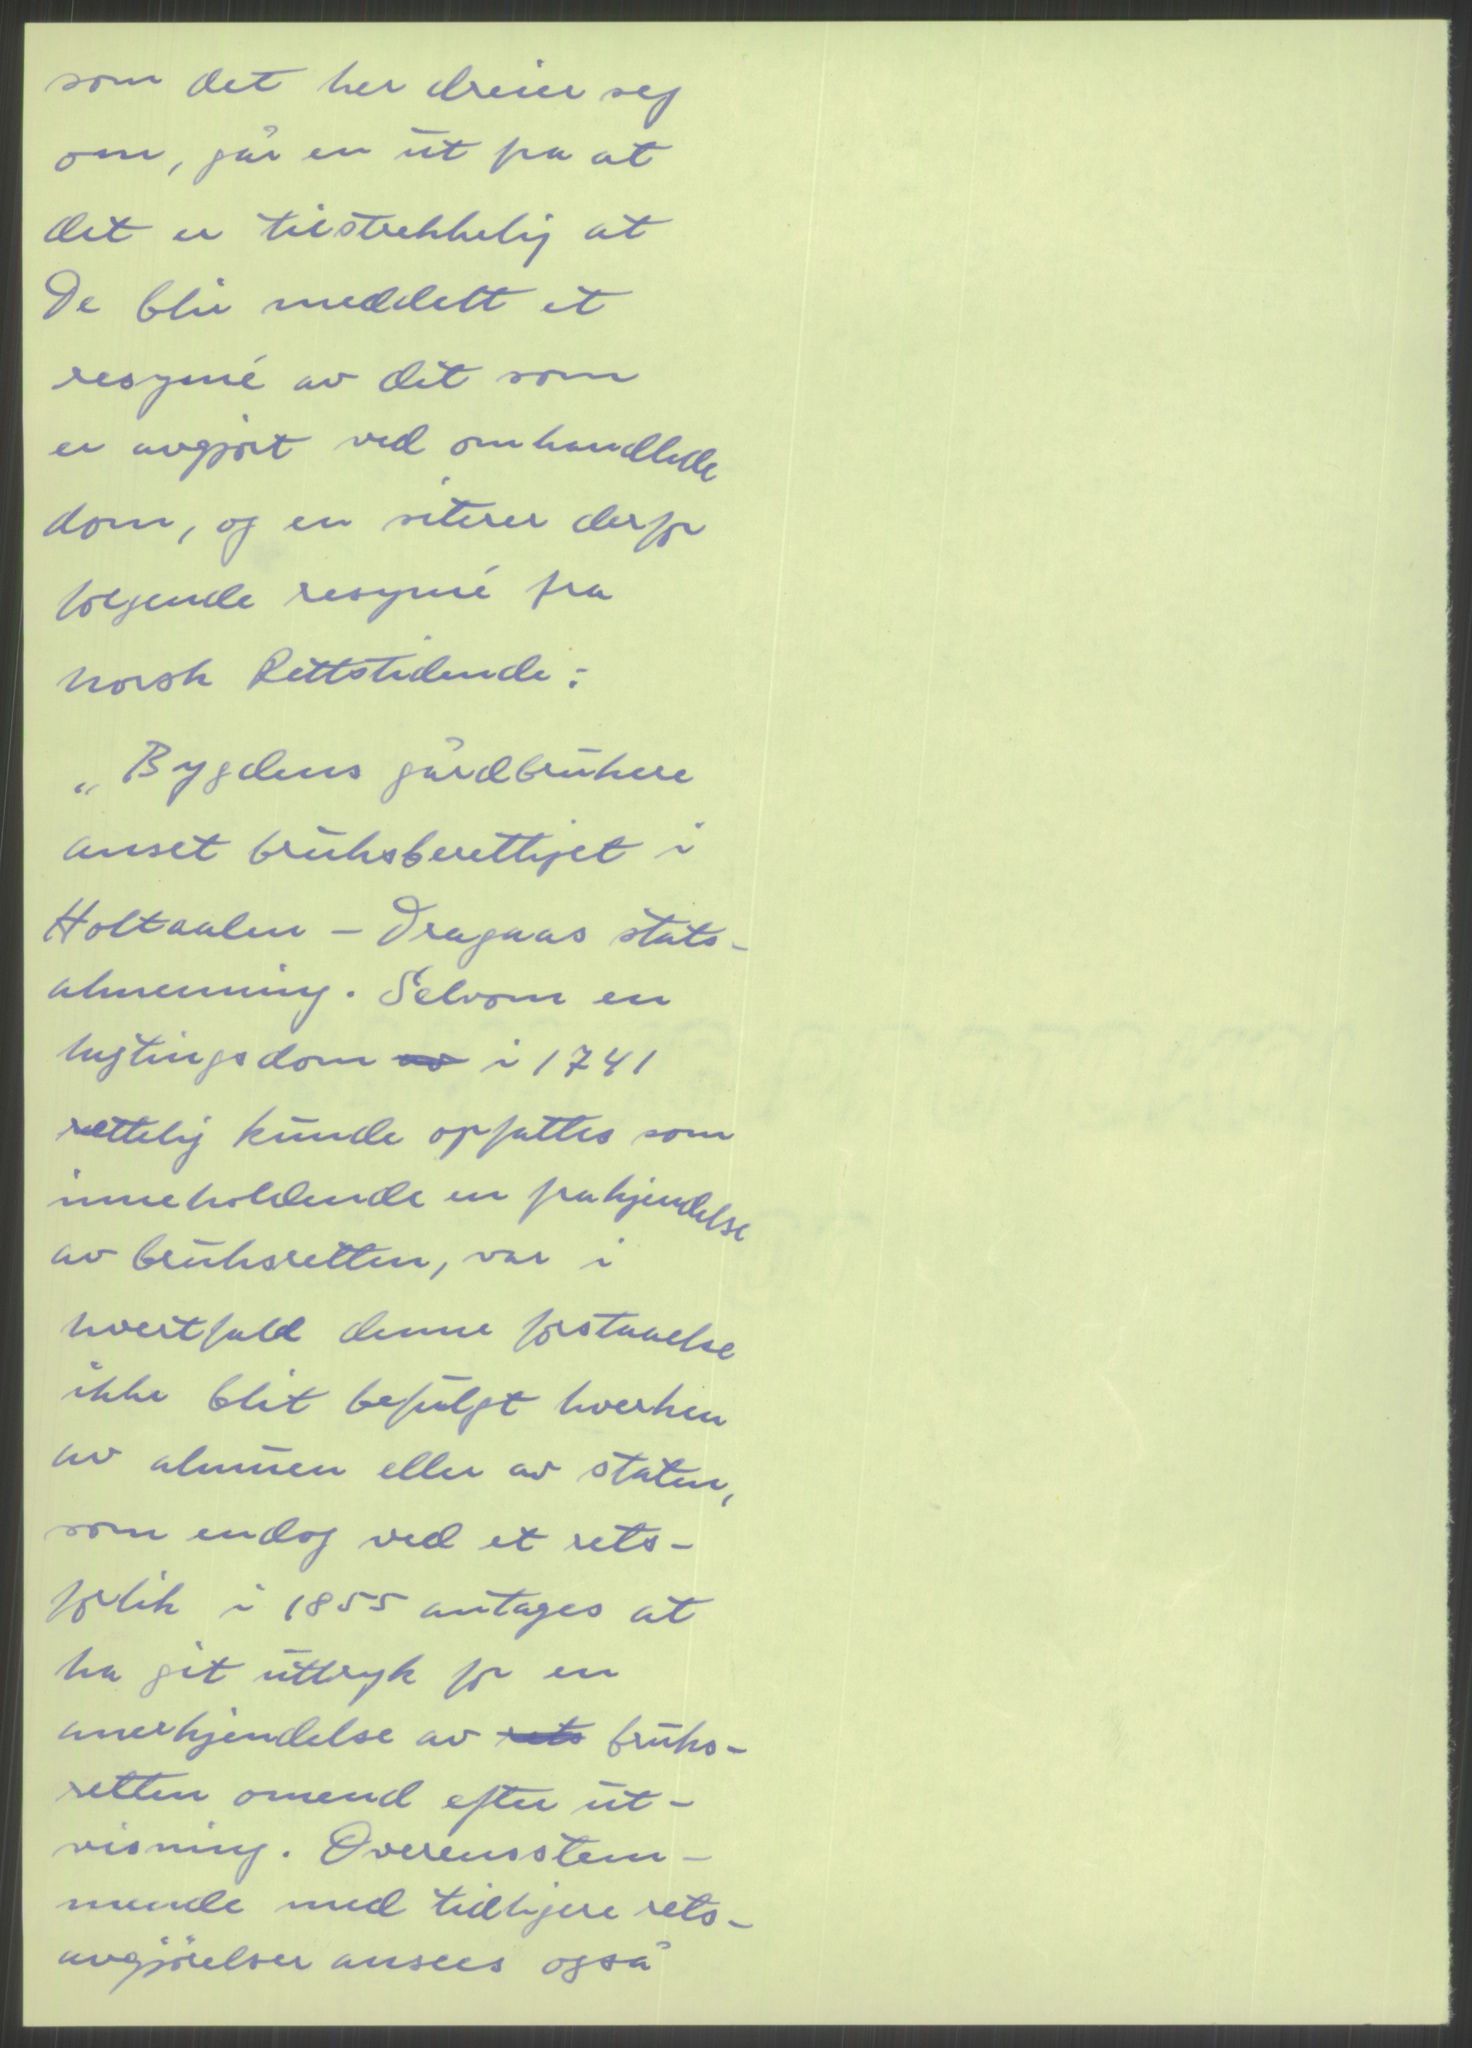 som det her dreier seg
om, går en ut fra at
det er tilstrekkelig at
De blir meddelt et
resymé av det som
er avgjort ved omhandlede
dom, og en siterer derfor
følgende resymé fra
Norsk Rettstidende:
„Bygdens gårdbrukere
anset bruksberettiget i
Holtaalen - Dragaas stats-
almenning. Selvom en
lagtingsdom av i 1741
rettelig kunde opfattes som
inneholdende en frakjendelse
av bruksretten, var i
hvertfald denne forstaaelse
ikke blit befulgt hverken
av almuen eller av staten,
som endog ved et rets-
forlik i 1855 antages at
ha git uttryk for en
anerkjendelse av rets bruks-
retten omend efter ut-
visning. Overensstem-
mende med tidligere rets-
avgjørelser ansees også